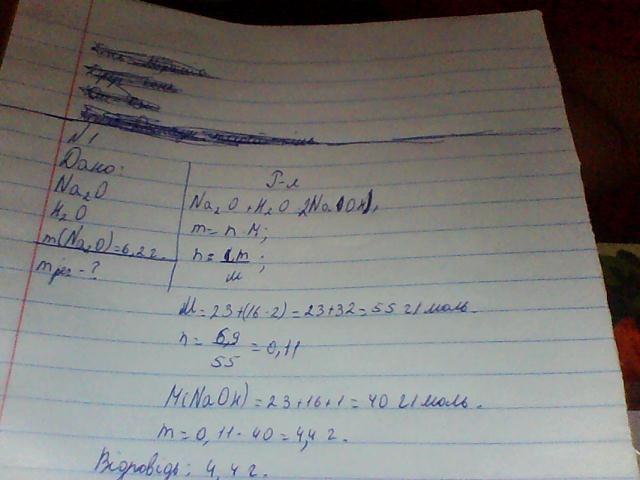 N1
Дано:
Na₂O
H₂O
m(Na₂O)=6,2 г.
m рез - ?
Р-л
Na₂O + H₂O 2Na(OH),
m = n · M;
n = m/M;
M = 23+(16·2) = 23+32 = 55 г/моль.
n = 6,2/55 = 0,11
M(NaOH) = 23+16+1 = 40 г/моль.
m = 0,11 · 40 = 4,4 г.
Відповідь: 4,4 г.